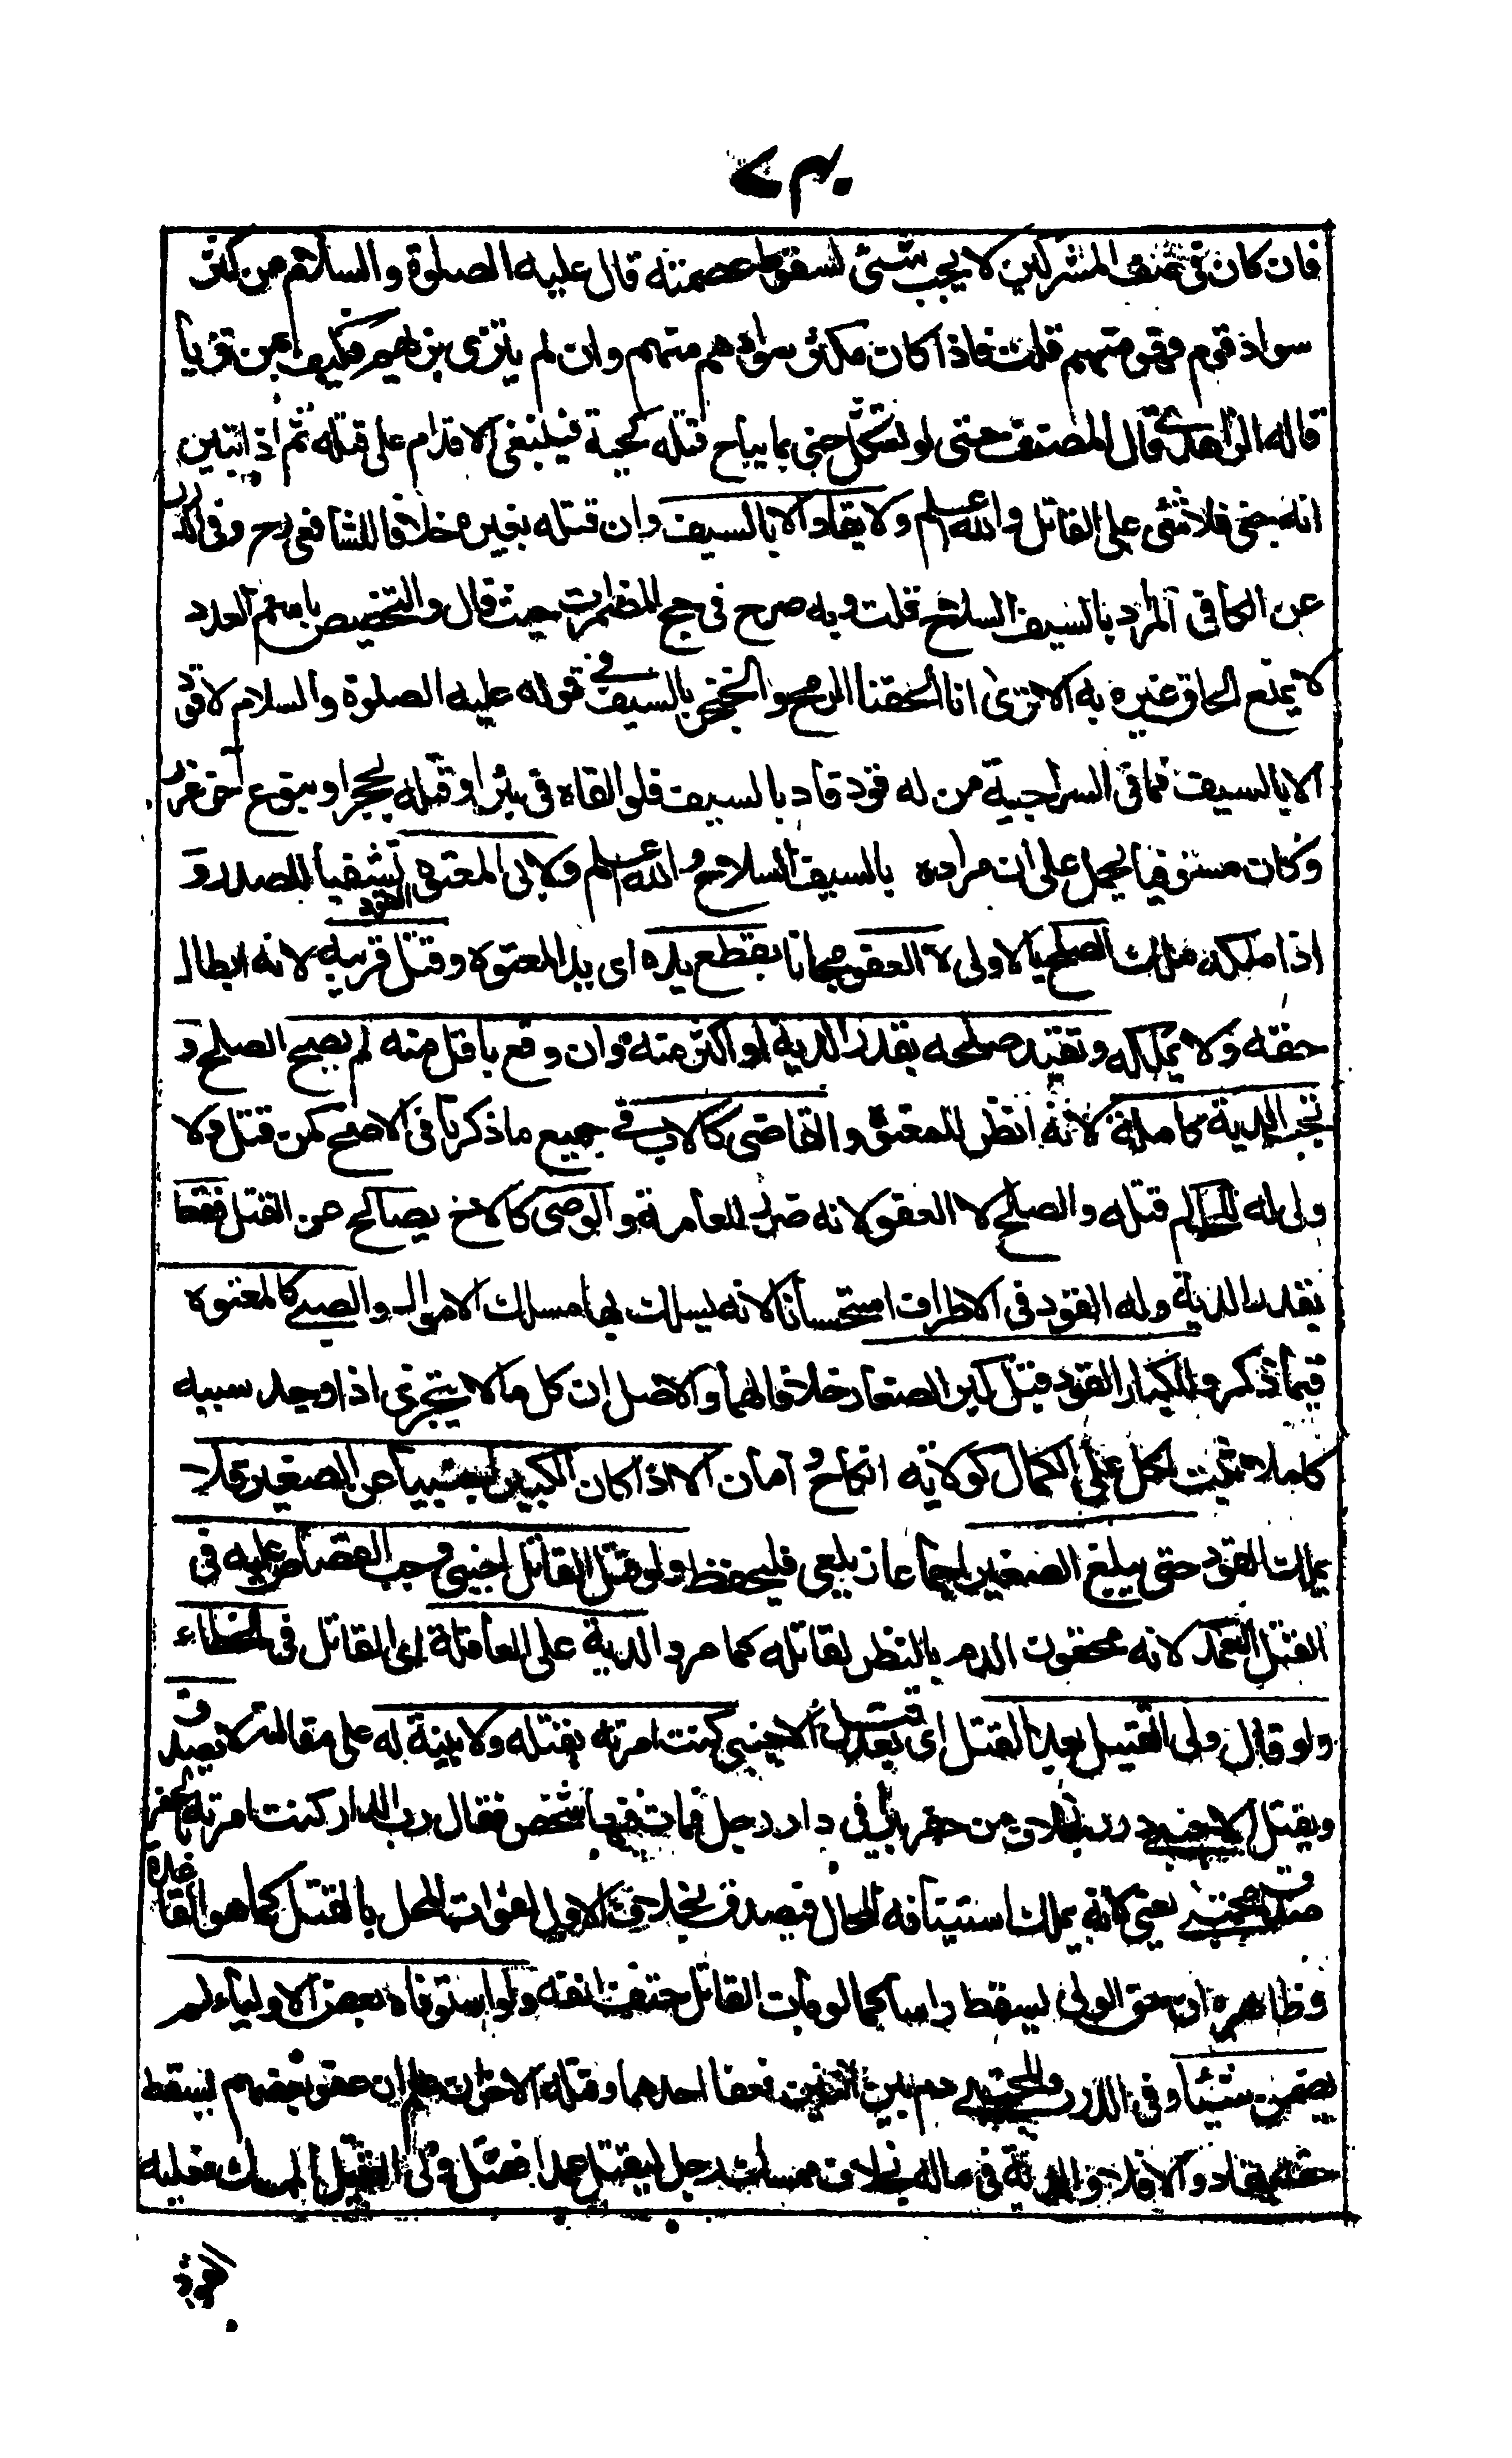 فان كان فى صف المشركين لا يجب شئ لسقوط عصمته قال عليه الصلوة والسلام من كثر
سواد قوم فهو منهم قلت فاذا كان مكثر سوادهم منهم وان لم يتزى بزيهم فكيف بمن تزيا
قاله الزاهدى قال المصنف حتى لو تشكل جنى بما يباح قتله كحية فينبغى الاقدام على قتله ثم اذا تبين
انه جنى فلا شئ على القاتل والله اعلم ولا يقاد الا بالسيف وان قتله بغيره خلافا للشافعى رح وفى الدرر
عن الكافى المراد بالسيف السلاح قلت وبه صرح فى حج المضمرات حيث قال والتخصيص باسم العدد
لا يمنع الحاق غيره به الا ترى انا الحقنا الرمح والخنجر بالسيف فى قوله عليه الصلوة والسلام لا قود
الا بالسيف فما فى السراجية من له قود قاد بالسيف فلو القاه فى بئر او قتله بحجر او بنوع اخر عزر
وكان مستوفيا يحمل على ان مراده بالسيف السلاح والله اعلم ولابى المعتوه القود تشفيا للصدر و
اذا ملكه ملك الصلح بالاولى لا العفو مجانا بقطع يده اى يد المعتوه وقتل قريبه لانه ابطال
حقه ولا يملكه وتقيد صلحه بقدر الدية او اكثر منه وان وقع باقل منه لم يصح الصلح و
تجب الدية كاملة لانه انظر للمعتوه والقاضى كالاب فى جميع ما ذكرنا فى الاصح كمن قتل ولا
ولى له للحاكم قتله والصلح لا العفو لانه ضرر للعامة والوصى كالاخ يصالح عن القتل فقط
بقدر الدية وله القود فى الاطراف استحسانا لانه يسلك بها مسلك الاموال والصبى كالمعتوه
فيما ذكر وللكبار القود قبل كبر الصغار خلافا لهما والاصل ان كل ما لا يتجزى اذا وجد سببه
كاملا ثبت لكل على الكمال كولاية انكاح وامان الا اذا كان الكبير اجنبيا عن الصغير فلا
يملك القود حتى يبلغ الصغير اجماعا زيلعى فليحفظ ولو قتل القاتل اجنبى وجب القصاص عليه فى
القتل العمد لانه محقون الدم بالنظر لقاتله كما مر والدية على العاقلة اى القاتل فى الخطاء
ولو قال ولى القتيل بعد القتل اى بعد قتل الاجنبى كنت امرته بقتله ولا بينة له على مقالته لا يصدق
ويقتل الاجنبى درر بخلاف من حفر بئرا فى دار رجل فمات فيها شخص فقال رب الدار كنت امرته بالحفر
صدق مجتبى يعنى لانه يملك استينافه للحال فيصدق بخلاف الاول لفوات المحل بالقتل كما هو القاعدة
وظاهره ان حق الولى يسقط راسا كما لو مات القاتل حتف انفه ولو استوفاه بعض الاولياء لم
يضمن شيئا وفى الدرر والمجتبى دم بين اثنين فعفا احدهما وقتله الاخر ان علم ان عفو بعضهم يسقط
حقه يقاد والا فلا والدية فى ماله بخلاف ممسك رجل ليقتل عمدا فقتل ولى القتيل الممسك فعليه
القود